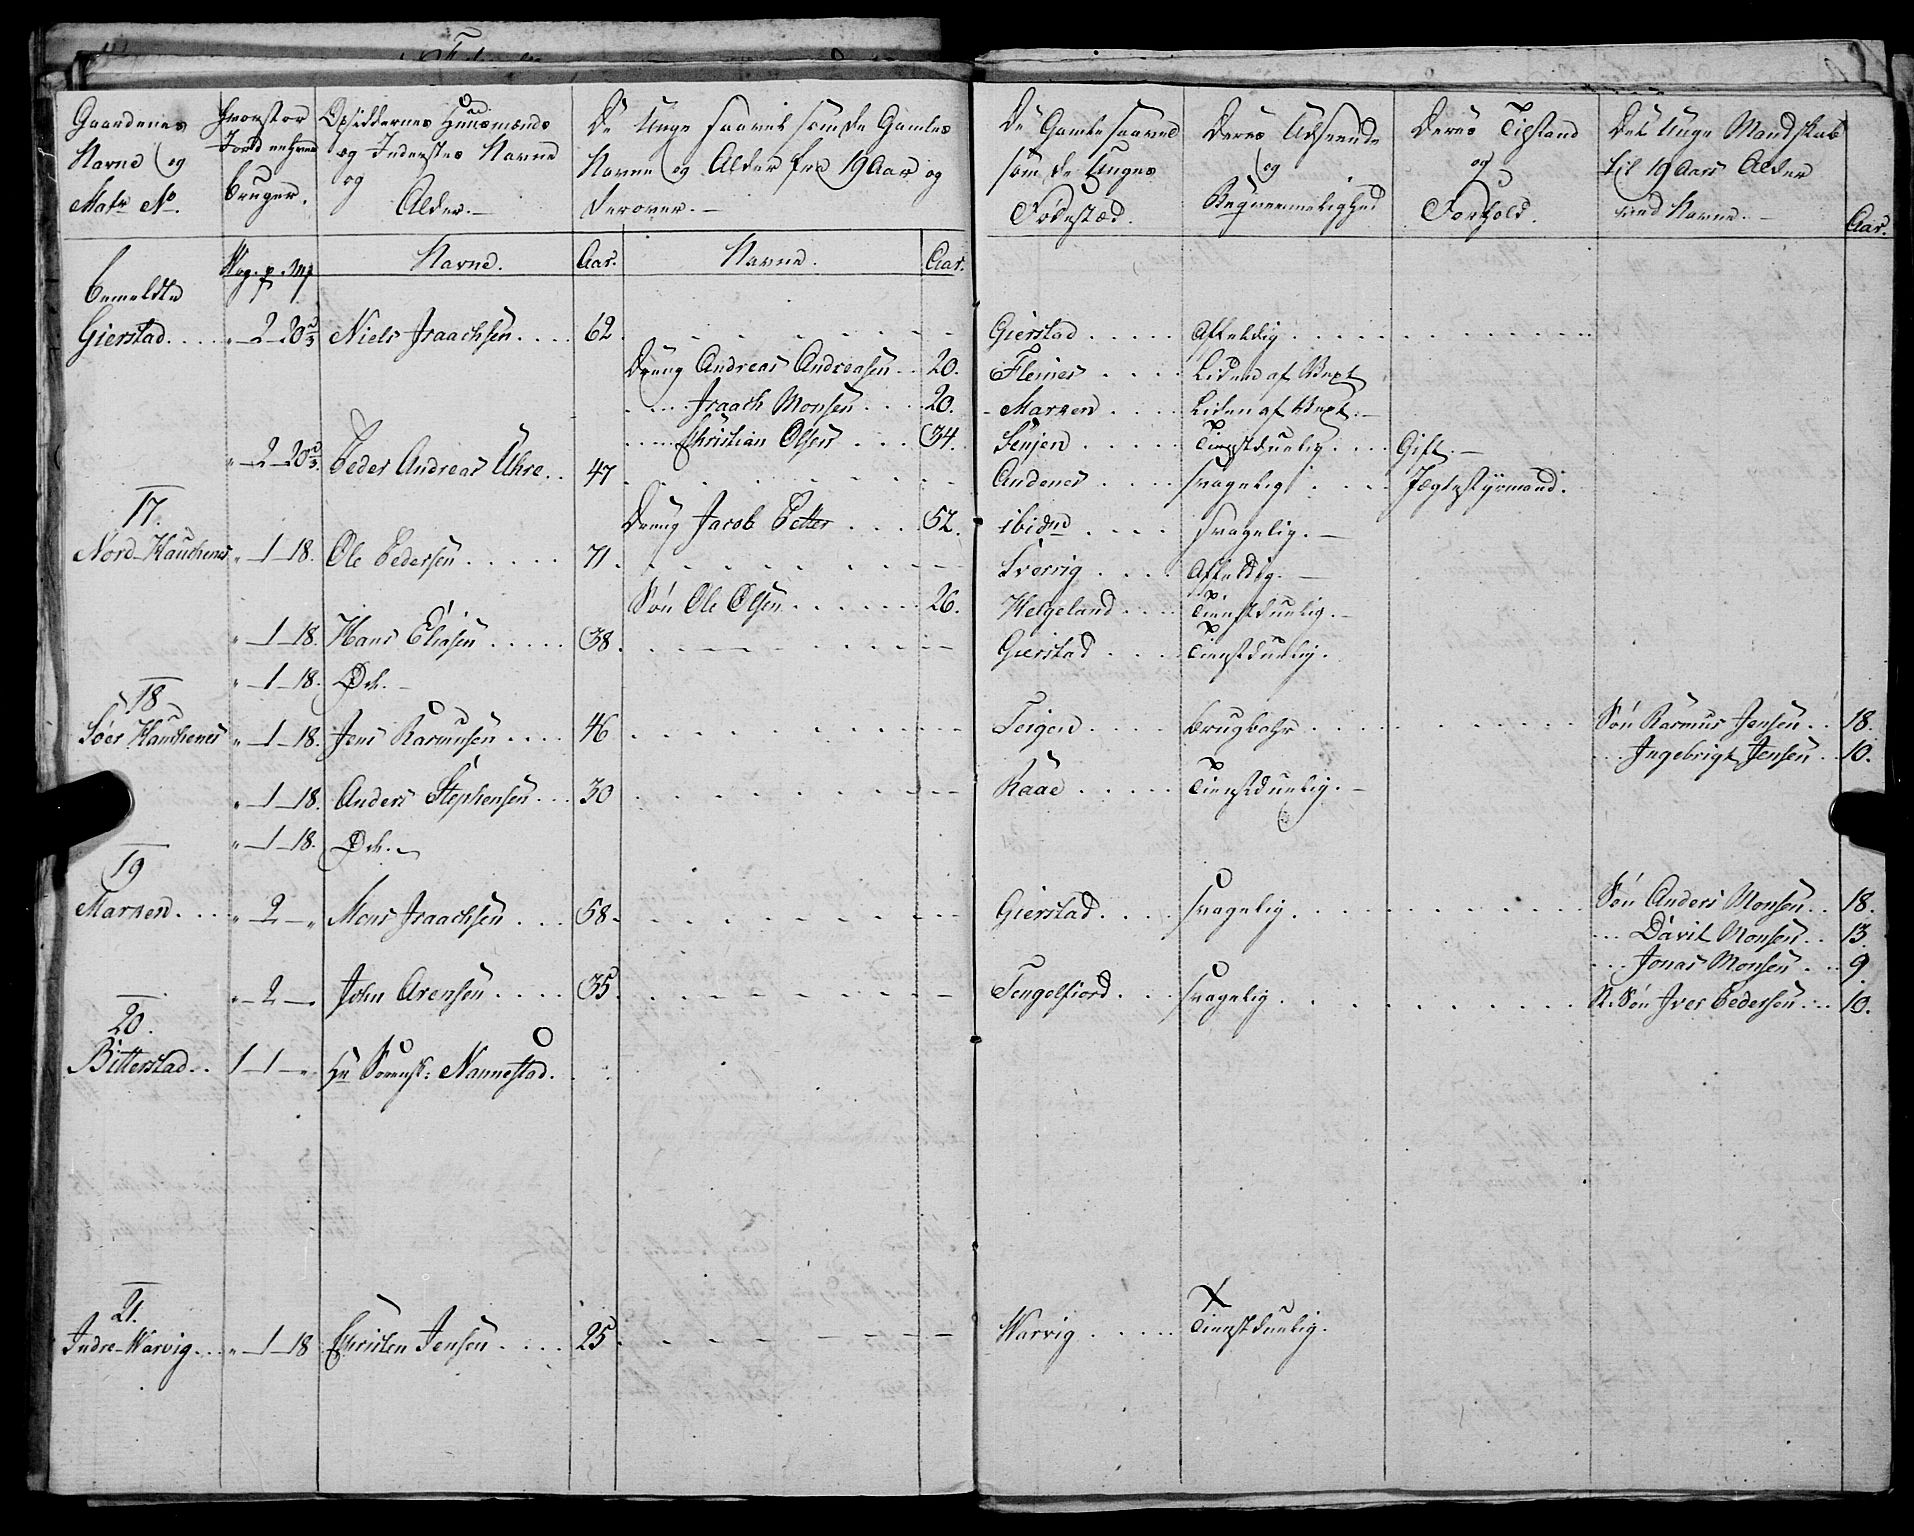 Gaardenes Navne og Matr No.
Hvor stor Jord en hver bruger.
Opsiddernes Huusmænds og Inderstes Navne og Alder.
De Unge saavel som de Gamles Navne og Alder fra 19 Aar og derover.
De Gamle saavel som de Unges Fødestæd.
Deres Udseende og Beqvemmelighed
Deres Tilstand og Forhold.
Det Unge Mandskab til 19 Aars Alder ved Navne.
Aar.
Wog. p. Mk
Navne.
Aar.
Navne.
Aar.
bemeldte
Gierstad " 2 20 2/3 Niels Isaachsen 62 Gierstad Affældig
Dreng Andreas Andreasen 20. Fleines Liden af Vext
Isaach Monsen 20. Marven Liden af Vext.
Christian Olsen 34. Senjen Tienstduelig Gift.
" 2 20 2/3 Peder Andreas Uhre 47 Andenes svagelig Jægtestyrmand.
Dreng Jacob Petter 52. ibidm svagelig.
17.
Nord-Hauchenes " 1 18. Ole Pedersen 71. Sverrig Affældig.
Søn Ole Olsen 26. Helgeland Tienstduelig.
" 1 18. Hans Eliasen 38. Gierstad Tienstduelig.
" 1 18. Øde.
18
Søer Hauchenes " 1 18. Jens Rasmusen 46 Teigen brugbahr Søn Rasmus Jensen 18.
Ingebrigt Jensen 10.
" 1 18. Anders Stephensen 30 Kaae Tienstduelig.
" 1 18. Øde.
19
Marven " 2 " Mons Isaachsen 58. Gierstad svagelig Søn Anders Monsen 18.
David Monsen 13.
Jonas Monsen 9.
" 2 " John Arensen 35. Tengelfiord svagelig S. Søn Iver Pedersen 10.
20.
Bitterstad 1 1 " Hr Sorensk: Nannestad.
21.
Indre-Warvig " 1 18 Christen Jensen 25. Warvig Tienstduelig.